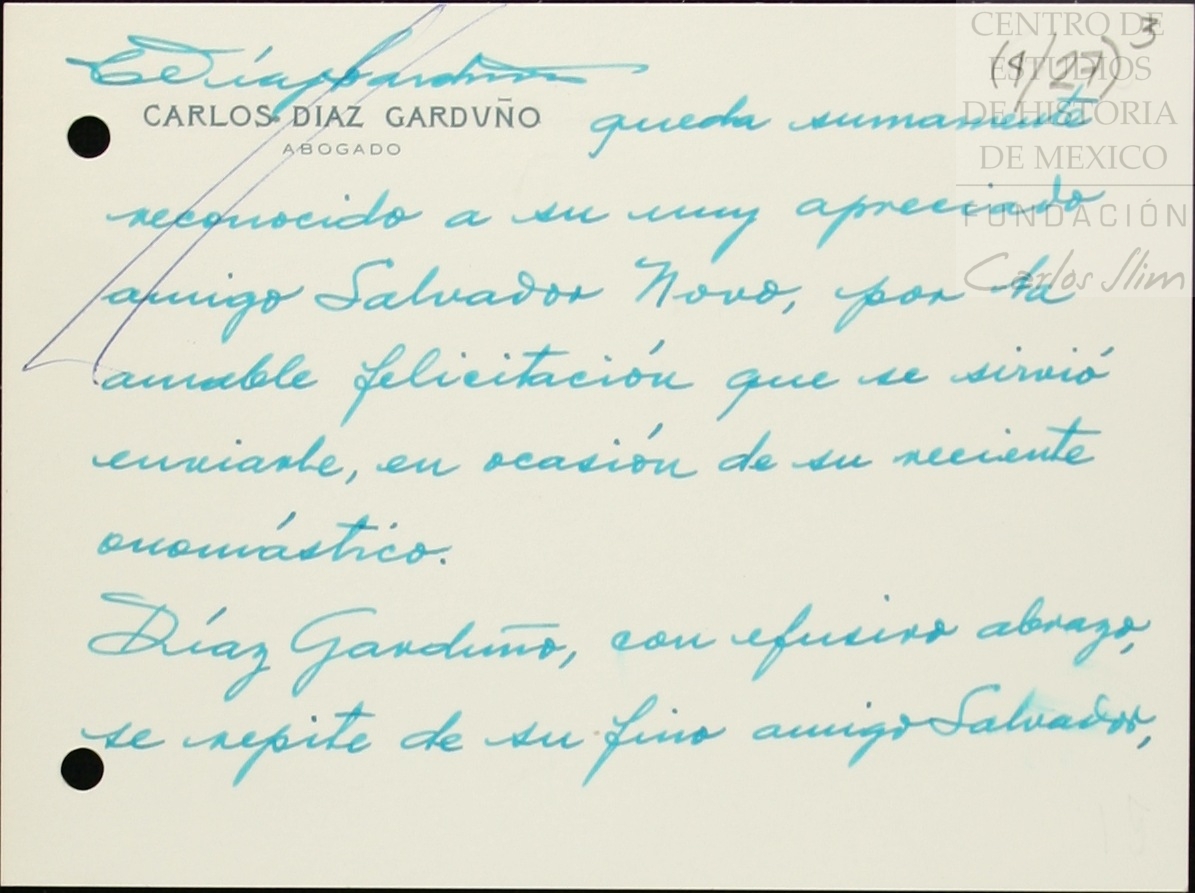 C Díaz Garduño
CARLOS DIAZ GARDVÑO
ABOGADO
queda sumamente
reconocido a su muy apreciado
amigo Salvador Novo, por la
amable felicitación que se sirvió
enviarle, en ocasión de su reciente
onomástico.
Díaz Garduño, con efusivo abrazo,
se repite de su fino amigo Salvador,
(1/27) 3
CENTRO DE
ESTUDIOS
DE HISTORIA
DE MEXICO
FUNDACIÓN
Carlos Slim